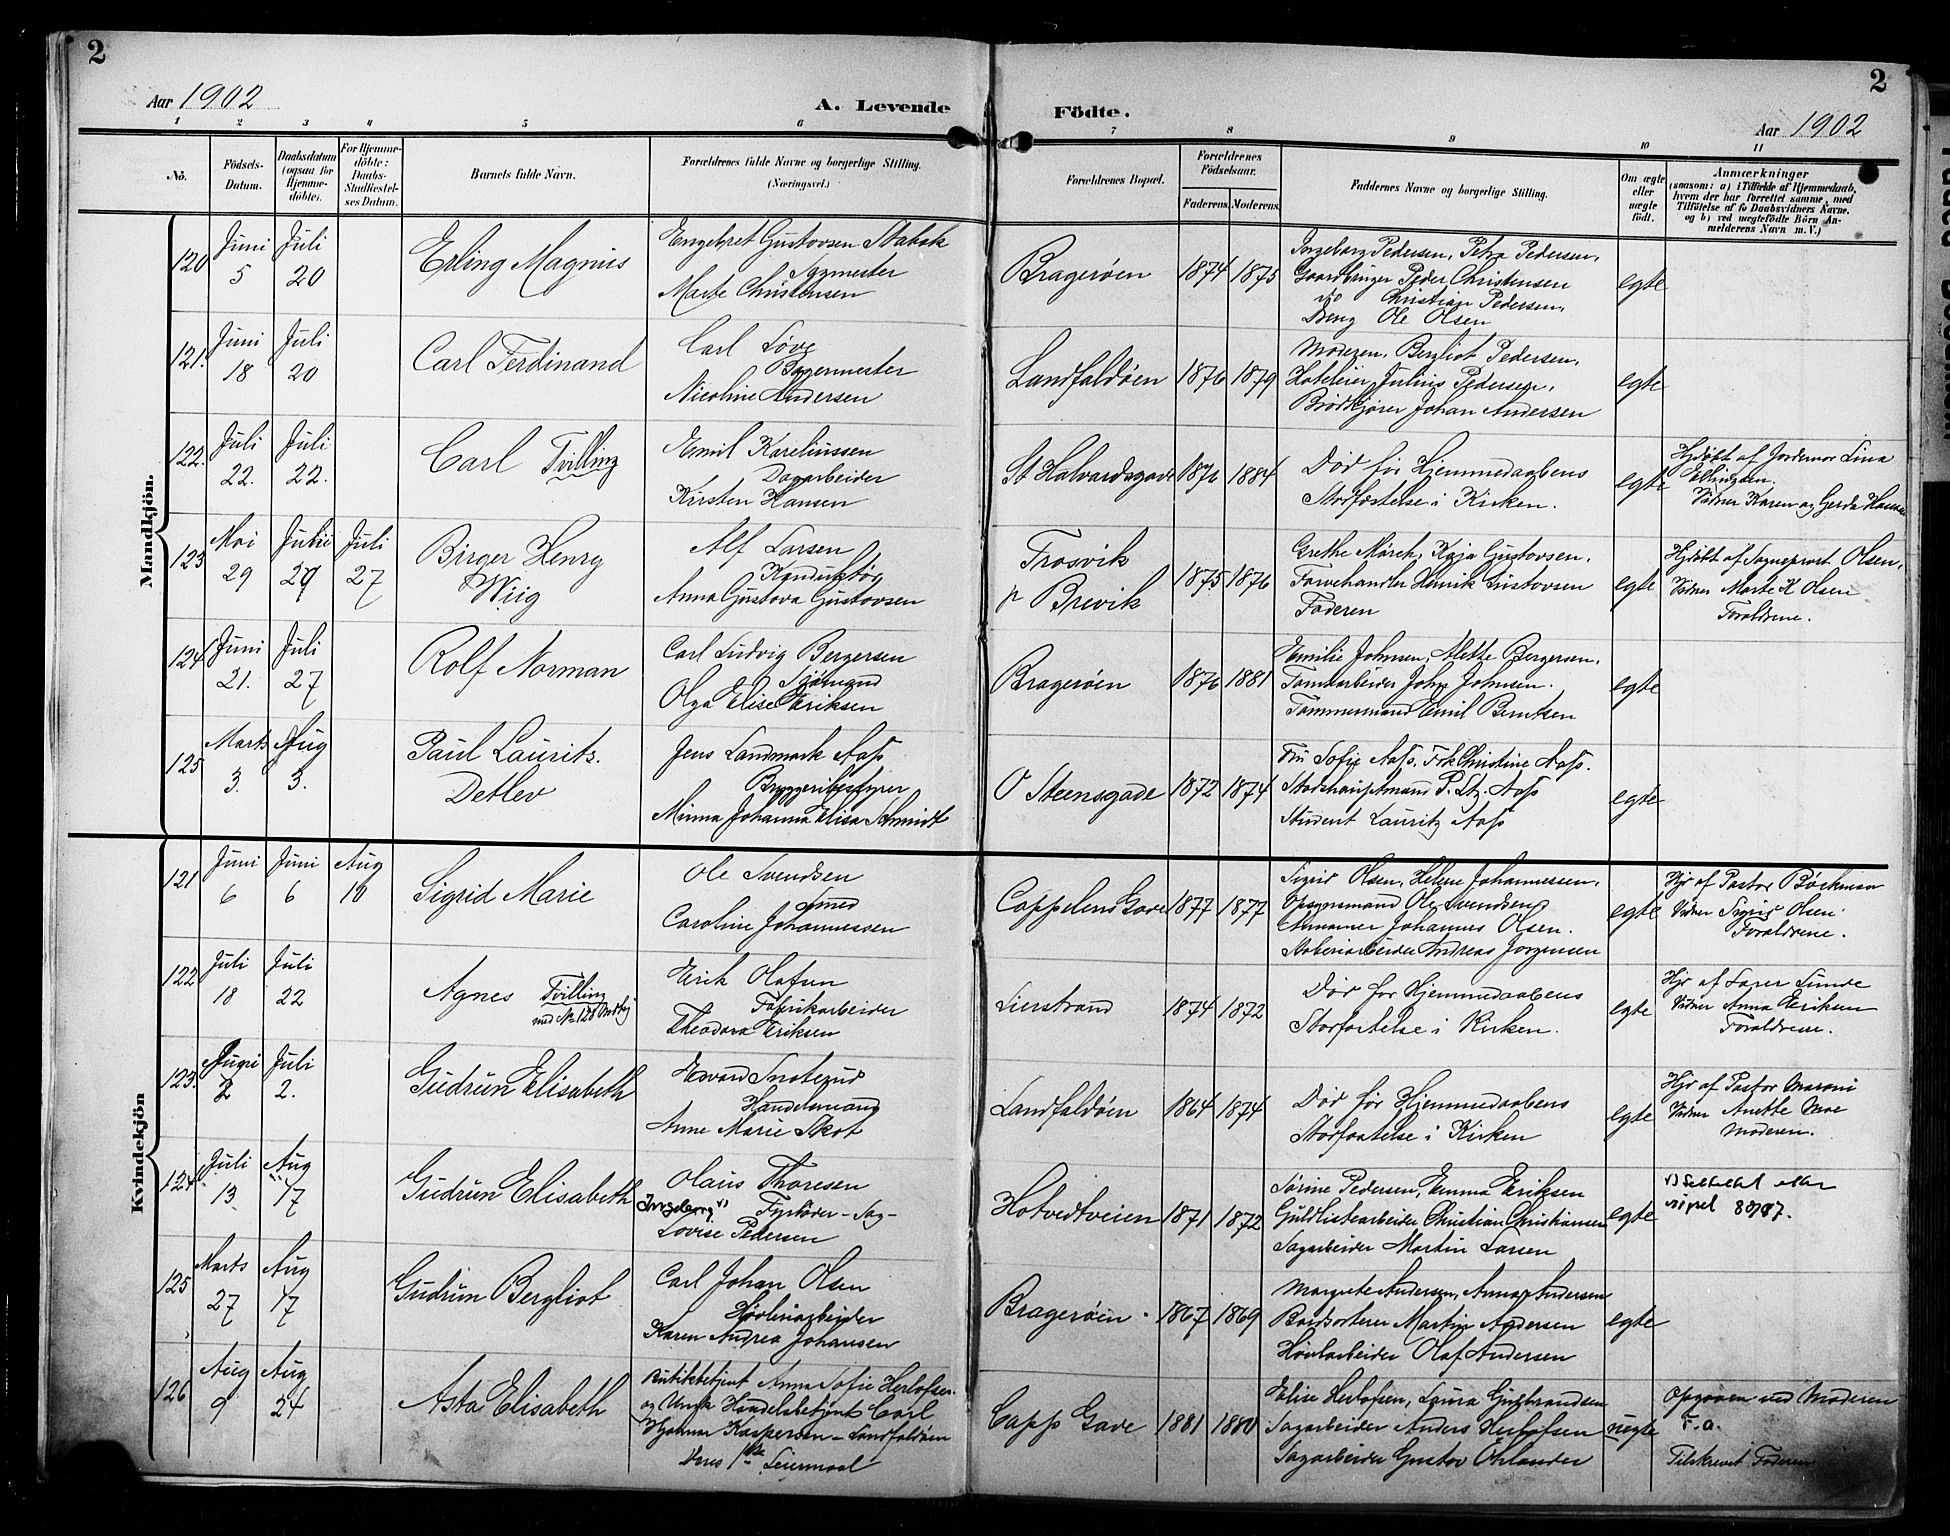 2
2
Aar 1902
A. Levende
Födte.
Aar 1902
1 2 3 4 5 6 7 8 9 10 11
Nö.
Födsels-
Datum.
Daabsdatum
(ogsaa for
Hjemme-
döbte).
For Hjemme-
döbte:
Daabs-
Stadfæstel-
ses Datum.
Barnets fulde Navn.
Forældrenes fulde Navne og borgerlige Stilling.
(Næringsvei.)
Forældrenes Bopæl.
Forældrenes
Födselsaar.
Faderens.
Moderens.
Faddernes Navne og borgerlige Stilling.
Om ægte
eller
uægte
födt.
Anmærkninger
(saasom: a) i Tilfælde af Hjemmedaab,
hvem der har forrettet samme, med
Tilföielse af to Daabsvidners Navne.
og b) ved uægtefödte Börn An-
melderens Navn m. V.)
Mandkjön.
120
Juni
5
Juli
20
Erling Magnus
Engebret Gustovsen Stabæk
Sagmester
Marte Christensen
Bragerøen
1874
1875
Ingeborg Pedersen, Petra Pedersen,
Gaardbruger Peder Christensen
do Christian Pedersen,
Ole Olsen
egte
121.
Juni
18
Juli
20
Carl Ferdinand
Carl Løve
Bagermester
Nicoline Andersen
Landfaldøen
1876
1879
Moderen, Bergliot Pedersen,
Hoteleier Julius Pedersen,
Brødkjører Johan Andersen
egte
122.
Juli
22.
Juli
22.
Carl Tvilling
Emil Kareliussen
Dagarbeider
Kirsten Hansen
St Halvardsgade
1876
1884
Død før Hjemmedaabens
Stadfæstelse i Kirken.
egte
Hjdøbt af Jordemor Lina
Ellingsen.
Vidner Karen og Gerda Hansen
123
Mai
29
Juni
29
Juli
27
Birger Henry
Wiig
Alf Larsen
Konduktør
Anna Gustova Gustovsen
Trosvik
pr Brevik
1875
1876
Grethe Mørch, Kaja Gustovsen.
Farvehandler Henrik Gustovsen
Faderen
egte
Hjdøbt af Sogneprest Olsen,
Vidner Marte K Olsen
Foraldrene.
124
Juni
21.
Juli
27
Rolf Norman
Carl Ludvig Bergersen
Sjømand
Olga Elise Eriksen
Bragerøen
1876
1881
Emilie Johnsen, Alette Bergersen.
Tomtearbeider John Johnsen.
Tømmermand Emil Berntsen
egte
125
Marts
3.
Aug
3.
Paul Lauritz.
Detlev
Jens Landmark Aass
Bryggeribestyrer
Minna Johanna Elisa Schmidt
O Steensgade
1872
1874
Fru Sofie Aass, Frk Christine Aass.
Stadshauptmand P. Ltz. Aass
Student Lauritz Aass
egte
Kvindekjön
121
Juni
6
Juni
6
Aug
10
Sigrid Marie
Ole Svendsen
Smed
Caroline Johannessen
Cappelens Gade
1877
1877
Sigrid Olsen, Helene Johannessen,
Opsynsmand Ole Svendsen,
Johannes Olsen.
Andreas Jørgensen
egte
Hjd af Pastor Bøckman
Vidner Sigrid Olsen.
Foraldrene.
122
Juli
18
Juli
22
Agnes Tvilling
med No 128 Mandkj
Erik Olafsen
Fabrikarbeider
Theodora Eriksen
Lierstrand
1874
1872
Død før Hjemmedaabens
Stadfæstelse i Kirken.
egte
Hjd af Lærer Linde
Vidner Anna Eriksen
Foraldrene.
123.
Juni
2
Juli
2.
Gudrun Elisabeth
Edvard Snoterud
Handelsmand
Anne Marie Skot
Landfaldøen
1864
1874
Død før Hjemmedaabens
Stadfæstelse i Kirken
egte
Hjd af Pastor Maroni
Vidner Anette Moe
Moderen.
124
Juli
13.
Aug
17
Gudrun Elisabeth
Ingeborg 1)
Olaus Thoresen
Fyrbøder - Sag-
Lovise Pedersen
Hotvedtveien
1871
1872
Sørine Pedersen, Emma Eriksen
Guldlistearbeider Christian Christiansen
Sagarbeider Martin Larsen
egte
1)
125
Marts
27
Aug
17
Gudrun Bergliot
Carl Johan Olsen
Høvleriarbeider
Karen Andrea Johansen
Bragerøen.
1867
1869
Margrete Andersen, Anna Andersen
Bordsorterer Martin Andersen
Høvlarbeider Olaf Andersen
egte
126
Aug
9
Aug
24
Asta Elisabeth
Butikbetjent Anna Sofie Herlofsen
og Ungk Handelsbetjent Carl
Hjalmar Kaspersen - Landfaldøen
Deres 1ste Leiermaal
Capp Gade
1881
1880
Elise Herlofsen, Laura Gulbrandsen
Sagarbeider Anders Herlofsen
Sagarbeider Gustav Øhlander
uegte
Opgaven ved Moderen
F. a.
Tilskrevet Faderen